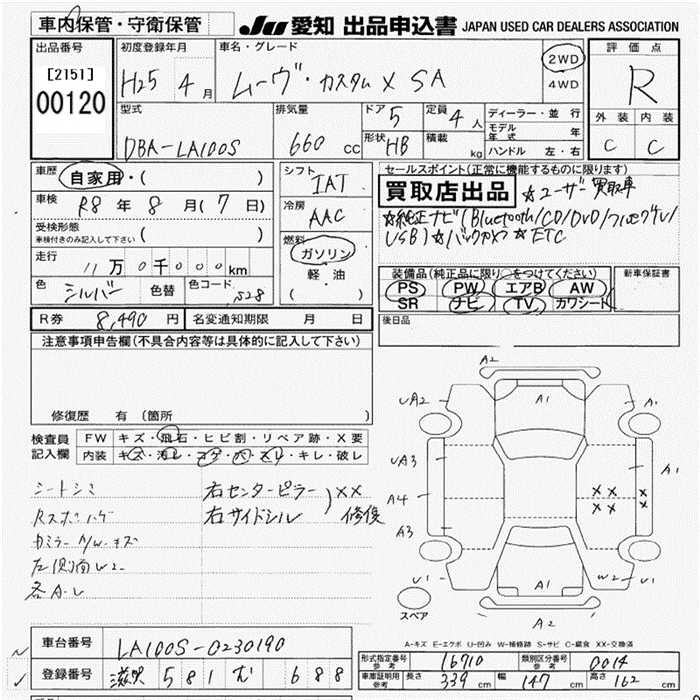 車内保管・守衛保管
JU 愛知 出品申込書 JAPAN USED CAR DEALERS ASSOCIATION
出品番号
[2151]
00120
初度登録年月
H25 4月
車名・グレード
ムーヴ・カスタム X SA
2WD
4WD
評価点
R
外装 内装
C C
型式
DBA-LA100S
排気量
660 cc
ドア 5
形状 HB
定員 4人
積載 kg
ディーラー・並行
モデル年式 年
ハンドル 左・右
車歴 自家用・( )
車検 R8年8月(7日)
受検形態
車検付きのみ記入して下さい ( )
走行 11万0千000km
色 シルバー 色替 色コード S28
シフト
IAT
冷房
AAC
燃料
ガソリン
軽・油
( )
セールスポイント(正常に機能するものに限ります)
買取店出品 ☆ユーザー買取車
☆純正ナビ(Bluetooth/CD/DVD/フルセグTV/
USB) ☆バックカメラ ☆ETC
装備品(純正品に限り○をつけてください)
新車保証書
PS PW エアB AW
SR ナビ TV カワシート
R券 8,490円 名変通知期限 月 日
後日品
注意事項申告欄(不具合内容等は具体的に記入して下さい)
修復歴 有(箇所 )
検査員
記入欄
FW キズ・飛石・ヒビ割・リペア跡・X要
内装 キズ・汚レ・コゲ・穴・スレ・キレ・破レ
シートシミ
右センターピラー
右サイドシル
)XX
修復
左側面U2
各A.U
A2
UA2
A1
A1
UA3
A1
A4
XX
XX
X
X
A3
U1
A1
W2
U1
A2
スペア
A-キズ E-エクボ U-凹み W-補修跡 S-サビ C-腐食 XX-交換済
車台番号 LA100S-0230190
登録番号 滋賀 581 む 688
形式指定番号
参考
16710
類別区分番号
参考
0014
車庫証明用
参考
長さ 339 cm 幅 147 cm 高さ 162 cm